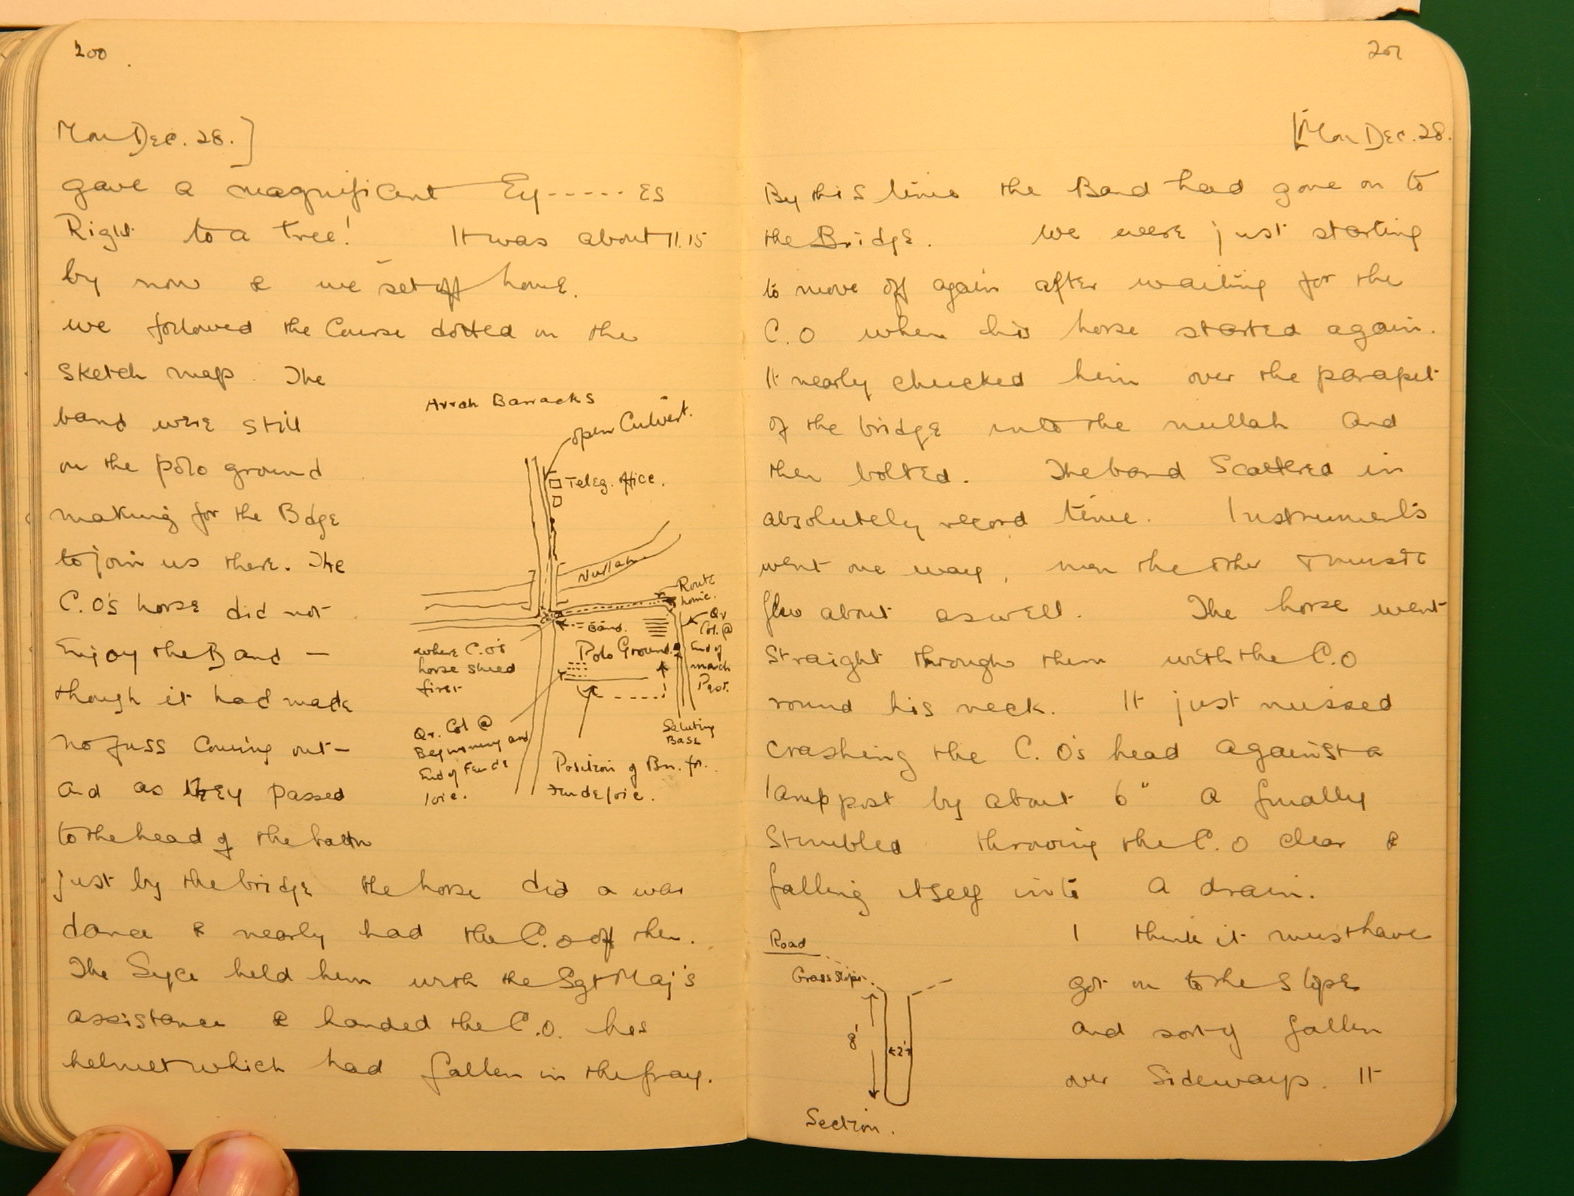 200
Mon Dec. 28.]
gave a magnificent Ey----- ES
Right to a tree! It was about 11.15
by now & we set off home.
we followed the Course dotted on the
sketch map. The
band were still
on the polo ground
making for the Bdge
to join us there. The
C.O's horse did not
Enjoy the Band —
though it had made
no fuss Coming out—
and as they passed
to the head of the battn
just by the bridge the horse did a war
dance & nearly had the C.O off then.
The Syce held him with the Sgt Maj's
assistance & handed the C.O. his
helmet which had fallen in the fray.
Arrah Barracks
open Culvert.
Teleg. office.
Nullah
Route home.
Band.
Qr Col. @ End of march Past.
Polo Ground
where C.O's
horse shied
first
Saluting Base
Qr. Col @
Beginning and
End of Feu de
Joie.
Position of Bn. for
Feu de joie.
201
[Mon Dec. 28.
By this time the Band had gone on to
the Bridge. We were just starting
to move off again after waiting for the
C.O when his horse started again.
It nearly chucked him over the parapet
of the bridge into the nullah and
then bolted. The band Scattered in
absolutely record time. Instruments
went one way, men the other & music
flew about as well. The horse went
straight through them with the C.O
round his neck. It just missed
crashing the C.O's head against a
lamp post by about 6" & finally
stumbled throwing the C.O clear &
falling itself into a drain.
I think it must have
got on to the slope
and sort of fallen
over sideways. It
Road
Grass slope
8'
2'
Section.